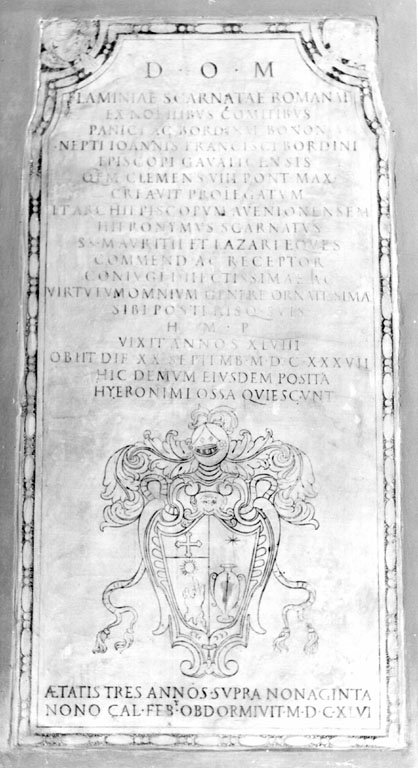 D·O·M
FLAMINIAE SCARNATAE ROMANAE
EX NOBILIBVS COMITIBVS
PANICI AC BORDINAE BONON
NEPTI IOANNIS FRANCISCI BORDINI
EPISCOPI CAVALICENSIS
QEM CLEMENS VIII PONT MAX
CREAVIT PROLEGATVM
ET ARCHIEPISCOPVM AVENIONENSEM
HIERONYMVS SCARNATVS
SS MAVRITII ET LAZARI EQVES
COMMEND AC RECEPTOR
CONIVGI DILECTISSIMAE AC
VIRTVTVM OMNIVM GENERE ORNATISSIMA
SIBI POSTERISQ SVIS
H M P
VIXIT ANNOS XLVIII
OBIIT DIE XX SEPTEMB M D C XXXVII
HIC DEMVM EIVSDEM POSITA
HYERONIMI OSSA QVIESCVNT
ÆTATIS TRES ANNOS SVPRA NONAGINTA
NONO CAL FEB OBDORMIVIT M D C XLVI